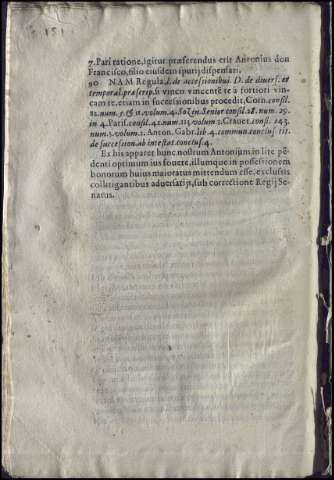 151
7. Pari ratione, igitur præferendus erit Antonius don
Francisco, filio eiusdem spurij dispensati.
90 NAM Regula l. de accessionibus. D. de diuers. et
temporal. præscrip. si vinco vincentē te à fortiori vin-
cam te, etiam in successionibus procedit, Corn. consil.
num. volum. 4. Soz. Senior consil. 28. num. 29.
in 4. Paris. consil. 42. num. 113. volum 3. Crauet. cons. 143.
num. 3. volum. 2. Anton. Gabr. lib. 4. commun. conclus tit.
de succession. ab intestat. conclus. 4.
Ex his apparet hunc nostrum Antonium, in lite pē-
denti optimum ius fouere, illumque in possessionem
bonorum huius maioratus mittendum esse, exclusis
collitigantibus aduersarijs, sub correctione Regij Se-
natus.